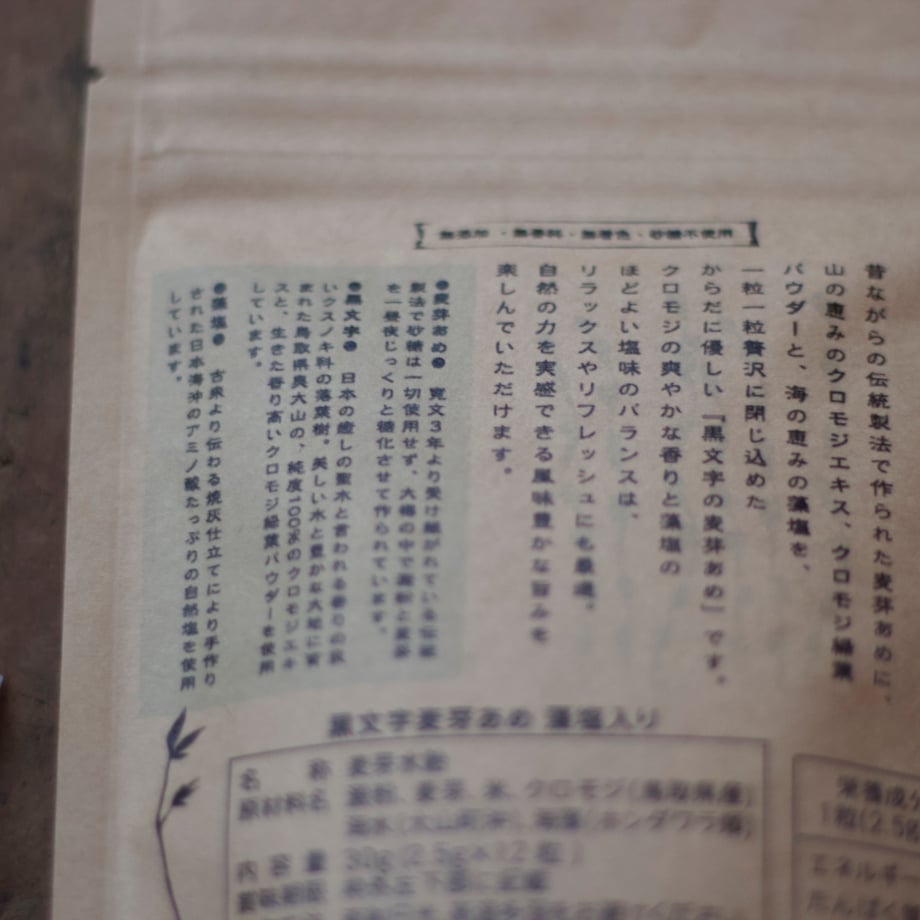 無添加・無香料・無着色・砂糖不使用
昔ながらの伝統製法で作られた麦芽あめに、
山の恵みのクロモジエキス、クロモジ緑葉
パウダーと、海の恵みの藻塩を、
一粒一粒贅沢に閉じ込めた
からだに優しい『黒文字の麦芽あめ』です。
クロモジの爽やかな香りと藻塩の
ほどよい塩味のバランスは、
リラックスやリフレッシュにも最適。
自然の力を実感できる風味豊かな旨みを
楽しんでいただけます。
●麦芽あめ● 寛文3年より受け継がれている伝統
製法で砂糖は一切使用せず、大桶の中で澱粉と麦芽
を一昼夜じっくりと糖化させて作られています。
●黒文字● 日本の癒しの聖木と言われる香りの良
いクスノキ科の落葉樹。美しい水と豊かな大地に育
まれた鳥取県奥大山の、純度100%のクロモジエキ
スと、生きた香り高いクロモジ緑葉パウダーを使用
しています。
●藻塩● 古来より伝わる焼灰仕立てにより手作り
された日本海沖のアミノ酸たっぷりの自然塩を使用
しています。
黒文字麦芽あめ 藻塩入り
名称 麦芽水飴
原材料名 澱粉、麦芽、米、クロモジ(鳥取県産)
海水(大山町沖)、海藻(ホンダワラ類)
内容量 30g(2.5g×12粒)
賞味期限
栄養成分
1粒(2.5g
エネルギー
たんぱく